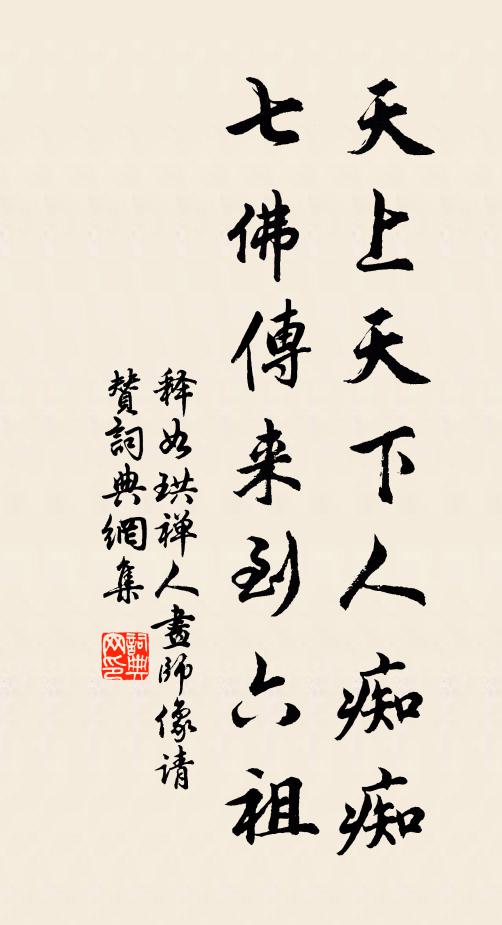 天上天下人痴痴
七佛傳来到六祖
释如珙禅人畫師像请
贊詞典網集
詞典网印